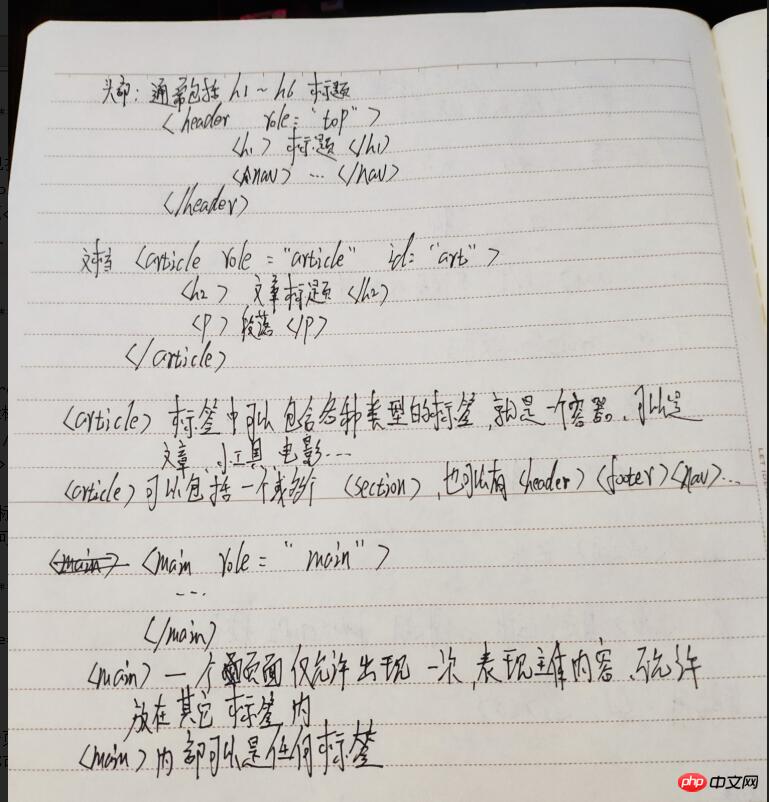 头部：通常包括 h1~h6 标题
<header role="top">
<h1> 标题 </h1>
<nav> ... </nav>
</header>
文档 <article role="article" id="art">
<h2> 文章标题 </h2>
<p> 段落 </p>
</article>
<article> 标签中可以包含各种类型的标签，就是一个容器。可以是
文章、小工具、电影...
<article> 可以包括一个或多个 <section>，也可以有 <header> <footer> <nav>...
<main> <main role="main">
...
</main>
<main> 一个页面仅允许出现一次，表现主体内容、不允许
放在其它标签内
<main> 内部可以是任何标签
php 中文网